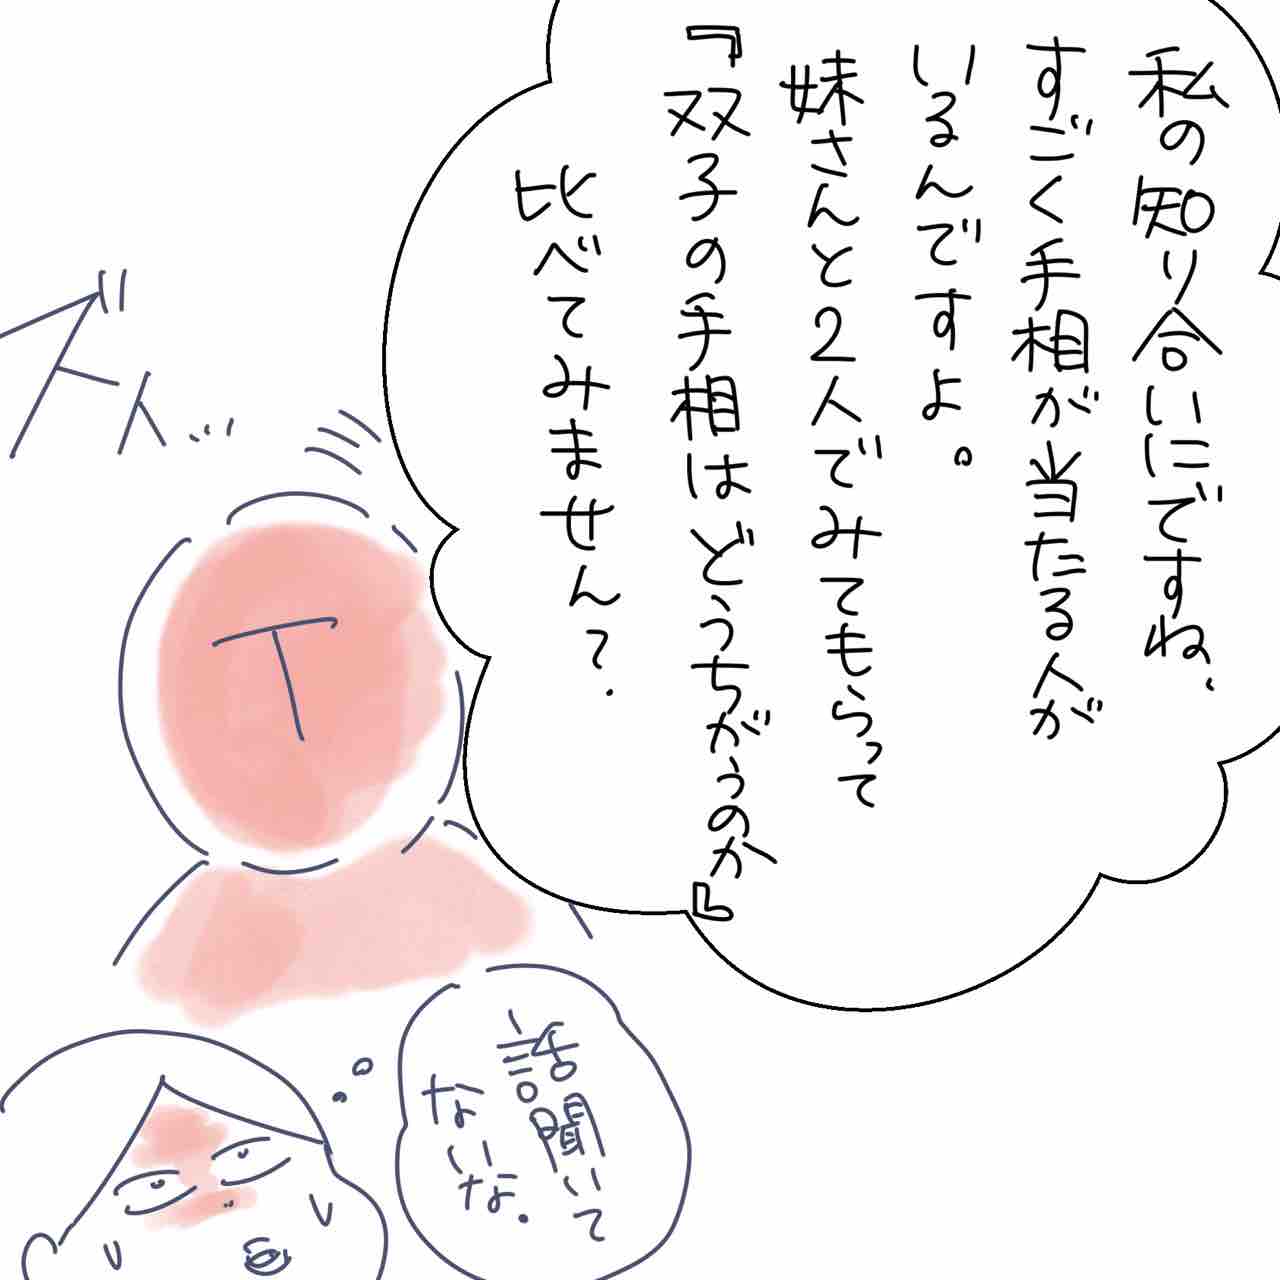 私の知り合いにですね、
すごく手相が当たる人が
いるんですよ。
妹さんと2人でみてもらって
『双子の手相はどうちがうのか』
比べてみません?
ズイ…
T
話聞いて
ないな。